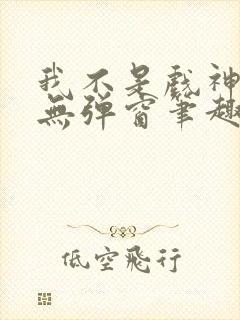 我不是戲神
無彈窗筆趣
低空飛行